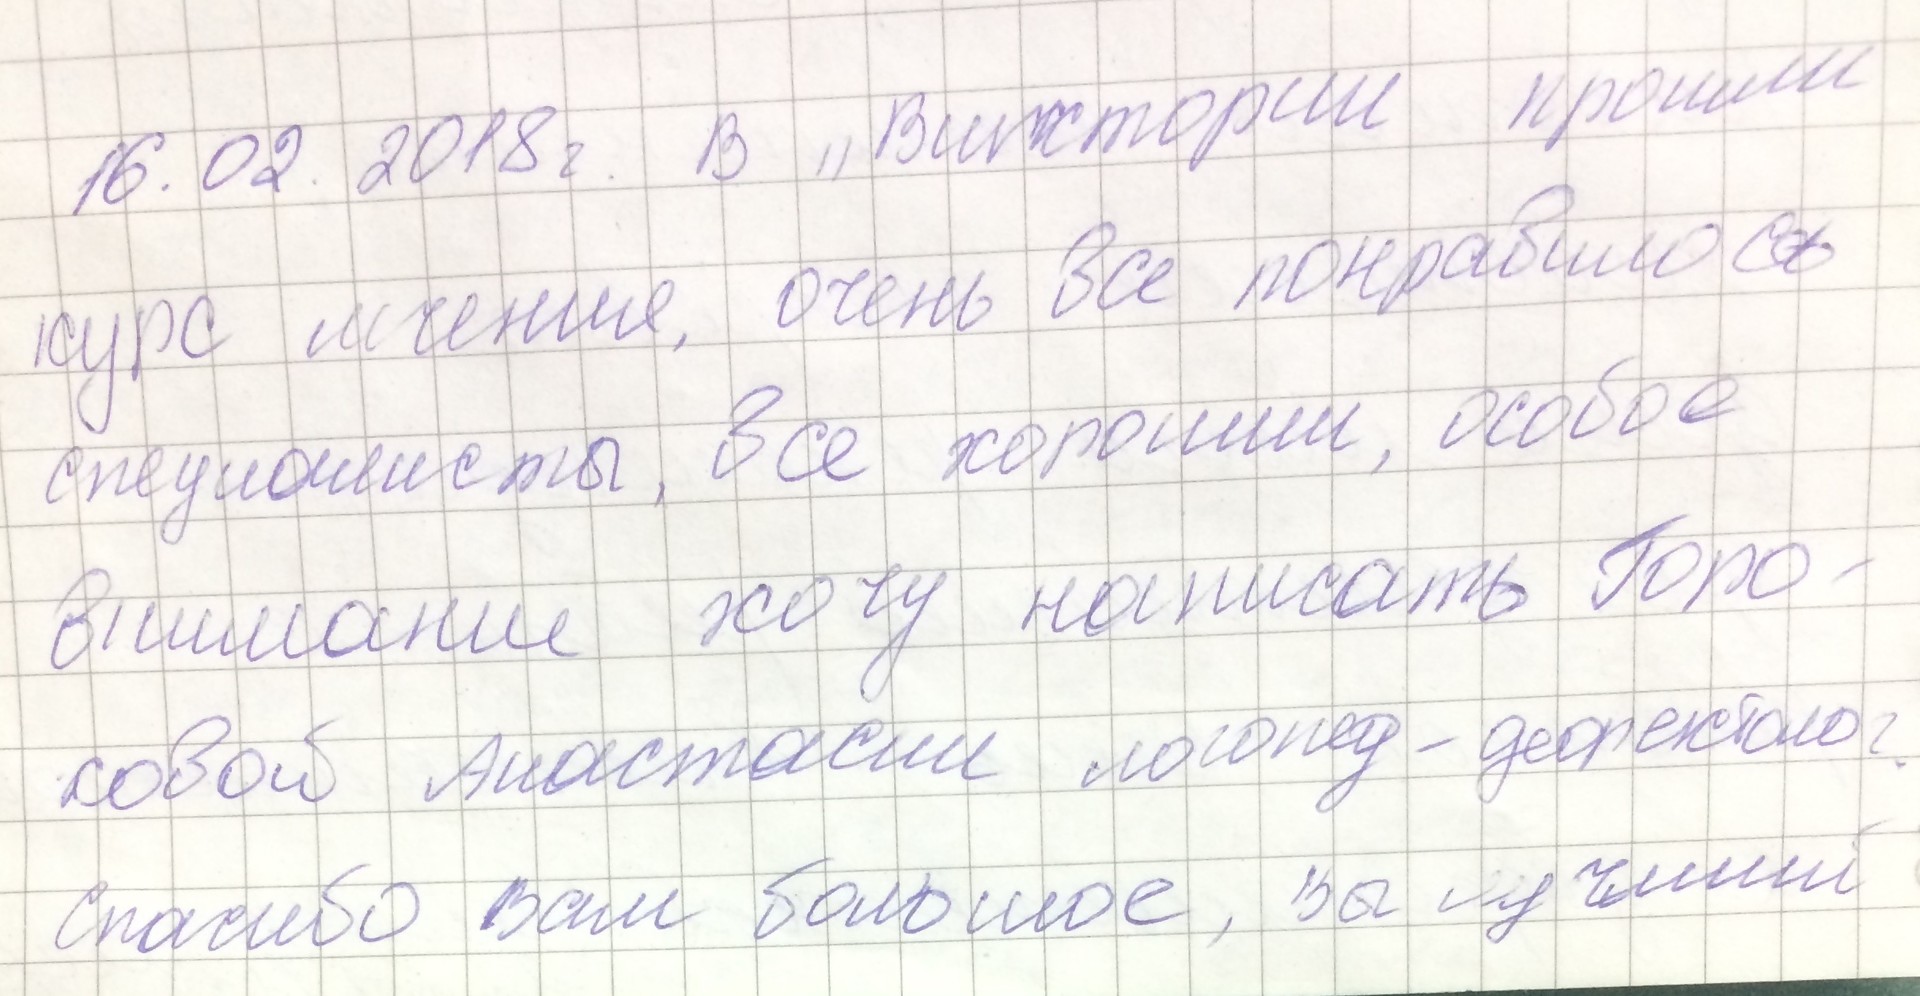 16.02.2018г. В „Виктории прошли
курс лечения, очень все понравилось
специалисты, все хорошии, особое
внимание хочу написать Горо-
ховой Анастасии логопед-дефектолог.
Спасибо Вам большое, Вы лучший